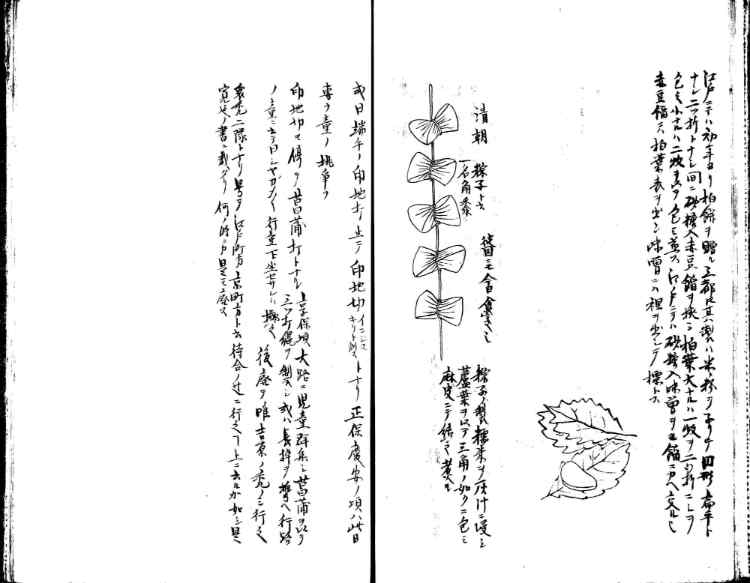 江戸ニテハ初年ヨリ柏餅ヲ贈ル三都トモ其製ハ米ノ粉ヲネリテ円形扁平ト
ナシ二ツ折トナシ間ニ砂糖入赤豆餡ヲ挟ミ柏葉大ナルハ一枚ヲ二ツ折ニシテ
包ミ小ナルハ二枚ヲ以テ包ミ蒸ス江戸ニテハ砂糖入味噌ヲモ餡ニカヘ交ル也
赤豆餡ニハ柏葉表ヲ出シ味噌ニハ裡ヲ出シテ標トス
清朝
粽子ト云
一名角黍
端午ニモ食之
粽子ノ製糯米ヲ灰汁ニ浸シ
蘆葉ヲ以テ三角ノ如クニ包ミ
麻皮ニテ縛之蒸ル
或曰端午ノ印地打ノ止テ印地切
トナリ正保慶安ノ頃ハ此日
専ラ童ノ挑争フ
印地切モ停テ菖蒲打トナル
享保頃大路ニ児童群集シ菖蒲ヲ以テ
三ツ打縄ヲ製シ或ハ長捍ヲ携ヘ行路
ノ童ニ
行童下坐セザレハ
後廃テ唯吉原ノ禿ノミ行之
衆禿二隊トナリ号テ江戸町方京町方ト云待合ノ辻ニ行之コト上ニ云ルカ如シ是
寛延ノ書ニ載タリ何ノ時ヨリ是モ廃ス